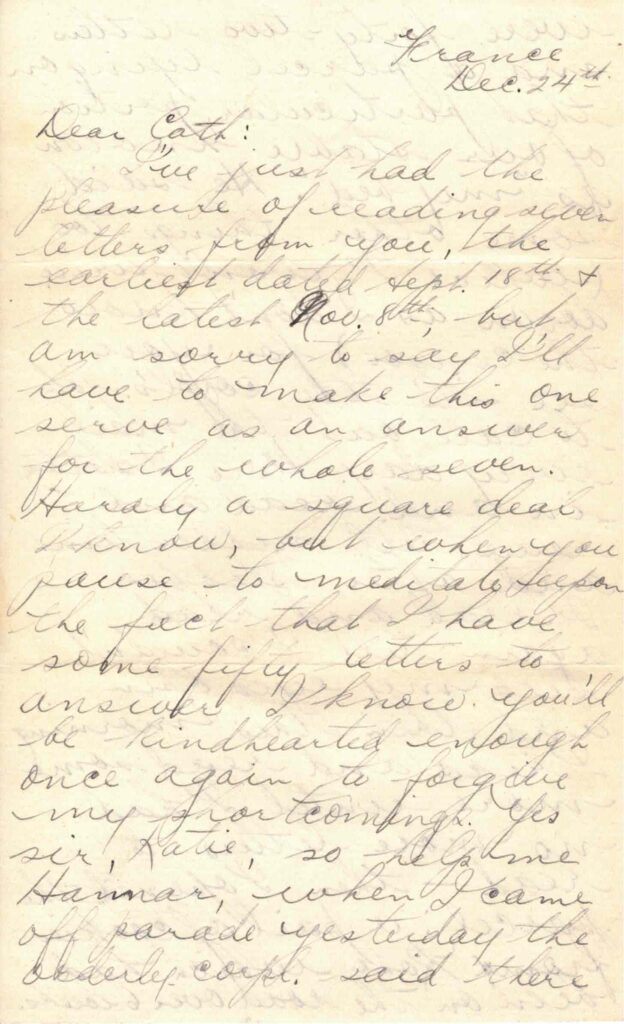 France
Dec. 24th
Dear Cath:
I've just had the
pleasure of reading seven
letters from you, the
earliest dated Sept. 18th &
the latest Nov. 8th, but
am sorry to say I'll
have to make this one
serve as an answer
for the whole seven.
Hardly a square deal
I know, but when you
pause to meditate upon
the fact that I have
some fifty letters to
answer I know you'll
be kindhearted enough
once again to forgive
my shortcomings. Yes
sir, Katie, so help me
Hannar, when I came
off parade yesterday the
orderly corp. said there